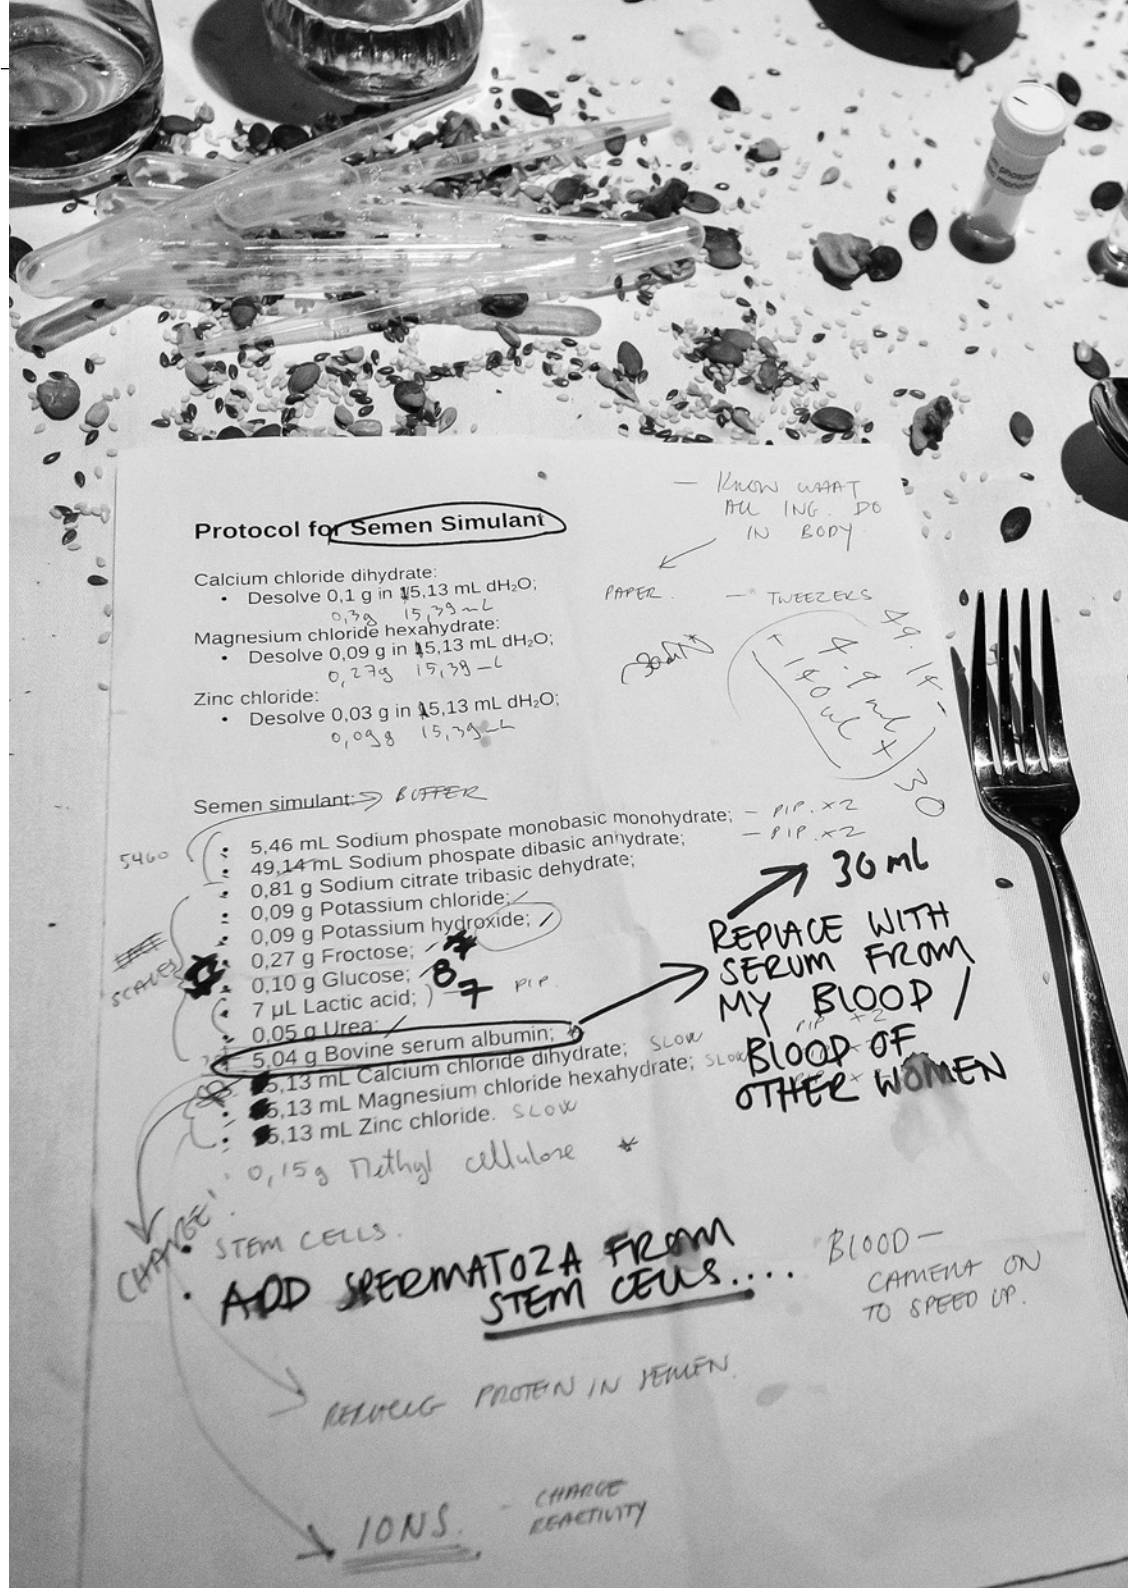 phosphate
Protocol for Semen Simulant
— KNOW WHAT
ALL ING. DO
IN BODY.
PAPER.
— TWEEZERS
Calcium chloride dihydrate:
• Desolve 0,1 g in 15,13 mL dH₂O;
0,3g 15,39 mL
Magnesium chloride hexahydrate:
• Desolve 0,09 g in 15,13 mL dH₂O;
0,27g 15,39 mL
Zinc chloride:
• Desolve 0,03 g in 15,13 mL dH₂O;
0,09g 15,39 mL
49.14-
4.9 ml
140 ul +
30
Semen simulant: → BUFFER
5460
• 5,46 mL Sodium phospate monobasic monohydrate; — PIP. x2
• 49,14 mL Sodium phospate dibasic anhydrate; — PIP. x2
• 0,81 g Sodium citrate tribasic dehydrate;
• 0,09 g Potassium chloride;
• 0,09 g Potassium hydroxide;
• 0,27 g Froctose;
• 0,10 g Glucose; 8
• 7 µL Lactic acid; 7 PIP.
• 0,05 g Urea;
• 5,04 g Bovine serum albumin;
• 5,13 mL Calcium chloride dihydrate; SLOW
• 5,13 mL Magnesium chloride hexahydrate; SLOW
• 5,13 mL Zinc chloride. SLOW
SCALES
30 ml
REPLACE WITH
SERUM FROM
MY BLOOD /
BLOOD OF
OTHER WOMEN
PIP x2
0,15g Methyl cellulose *
CHANGE!
• STEM CELLS.
• ADD SPERMATOZA FROM
STEM CELLS....
BLOOD —
CAMERA ON
TO SPEED UP.
PROTEIN IN SEMEN.
IONS. - CHARGE
REACTIVITY